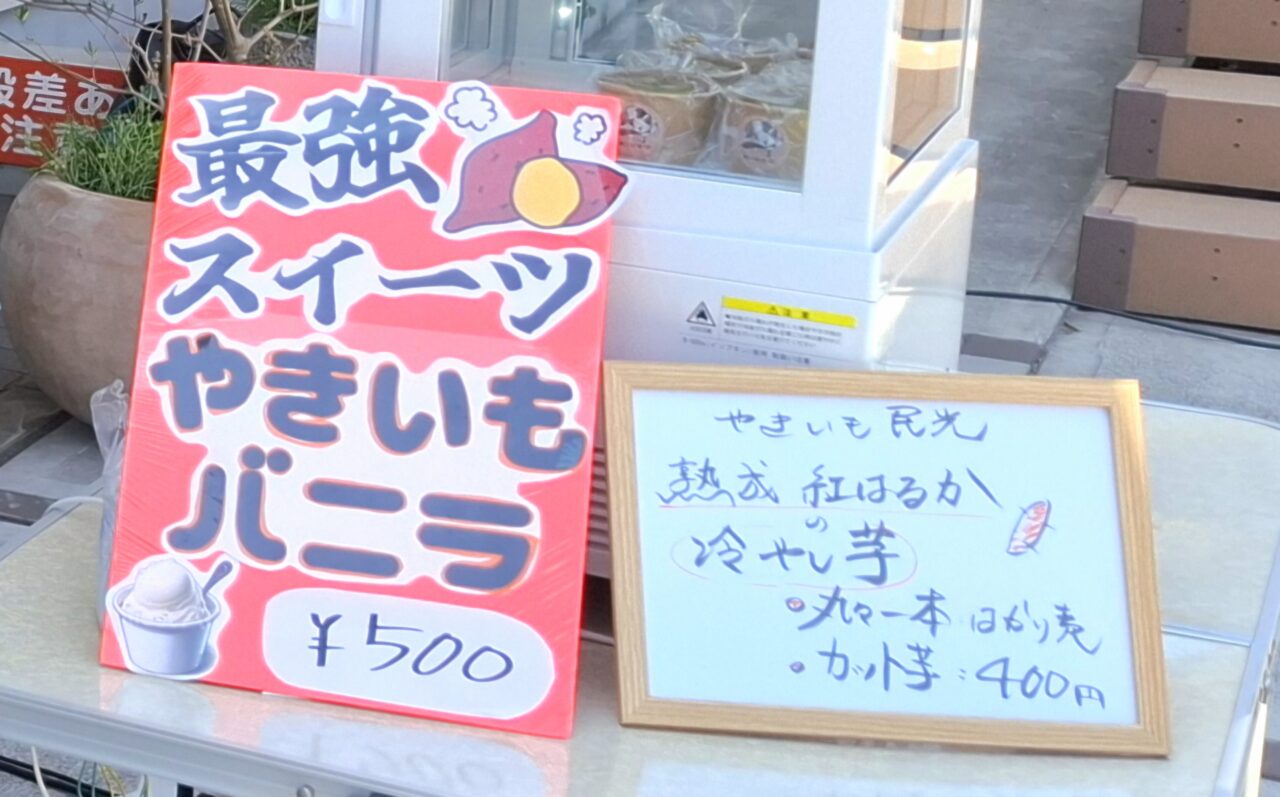 段差あ
注
最強
スイーツ
やきいも
バニラ
¥500
注意
やきいも 民光
熟成 紅はるか
の
冷やし芋
・丸々一本 はかり売
・カット芋:400円